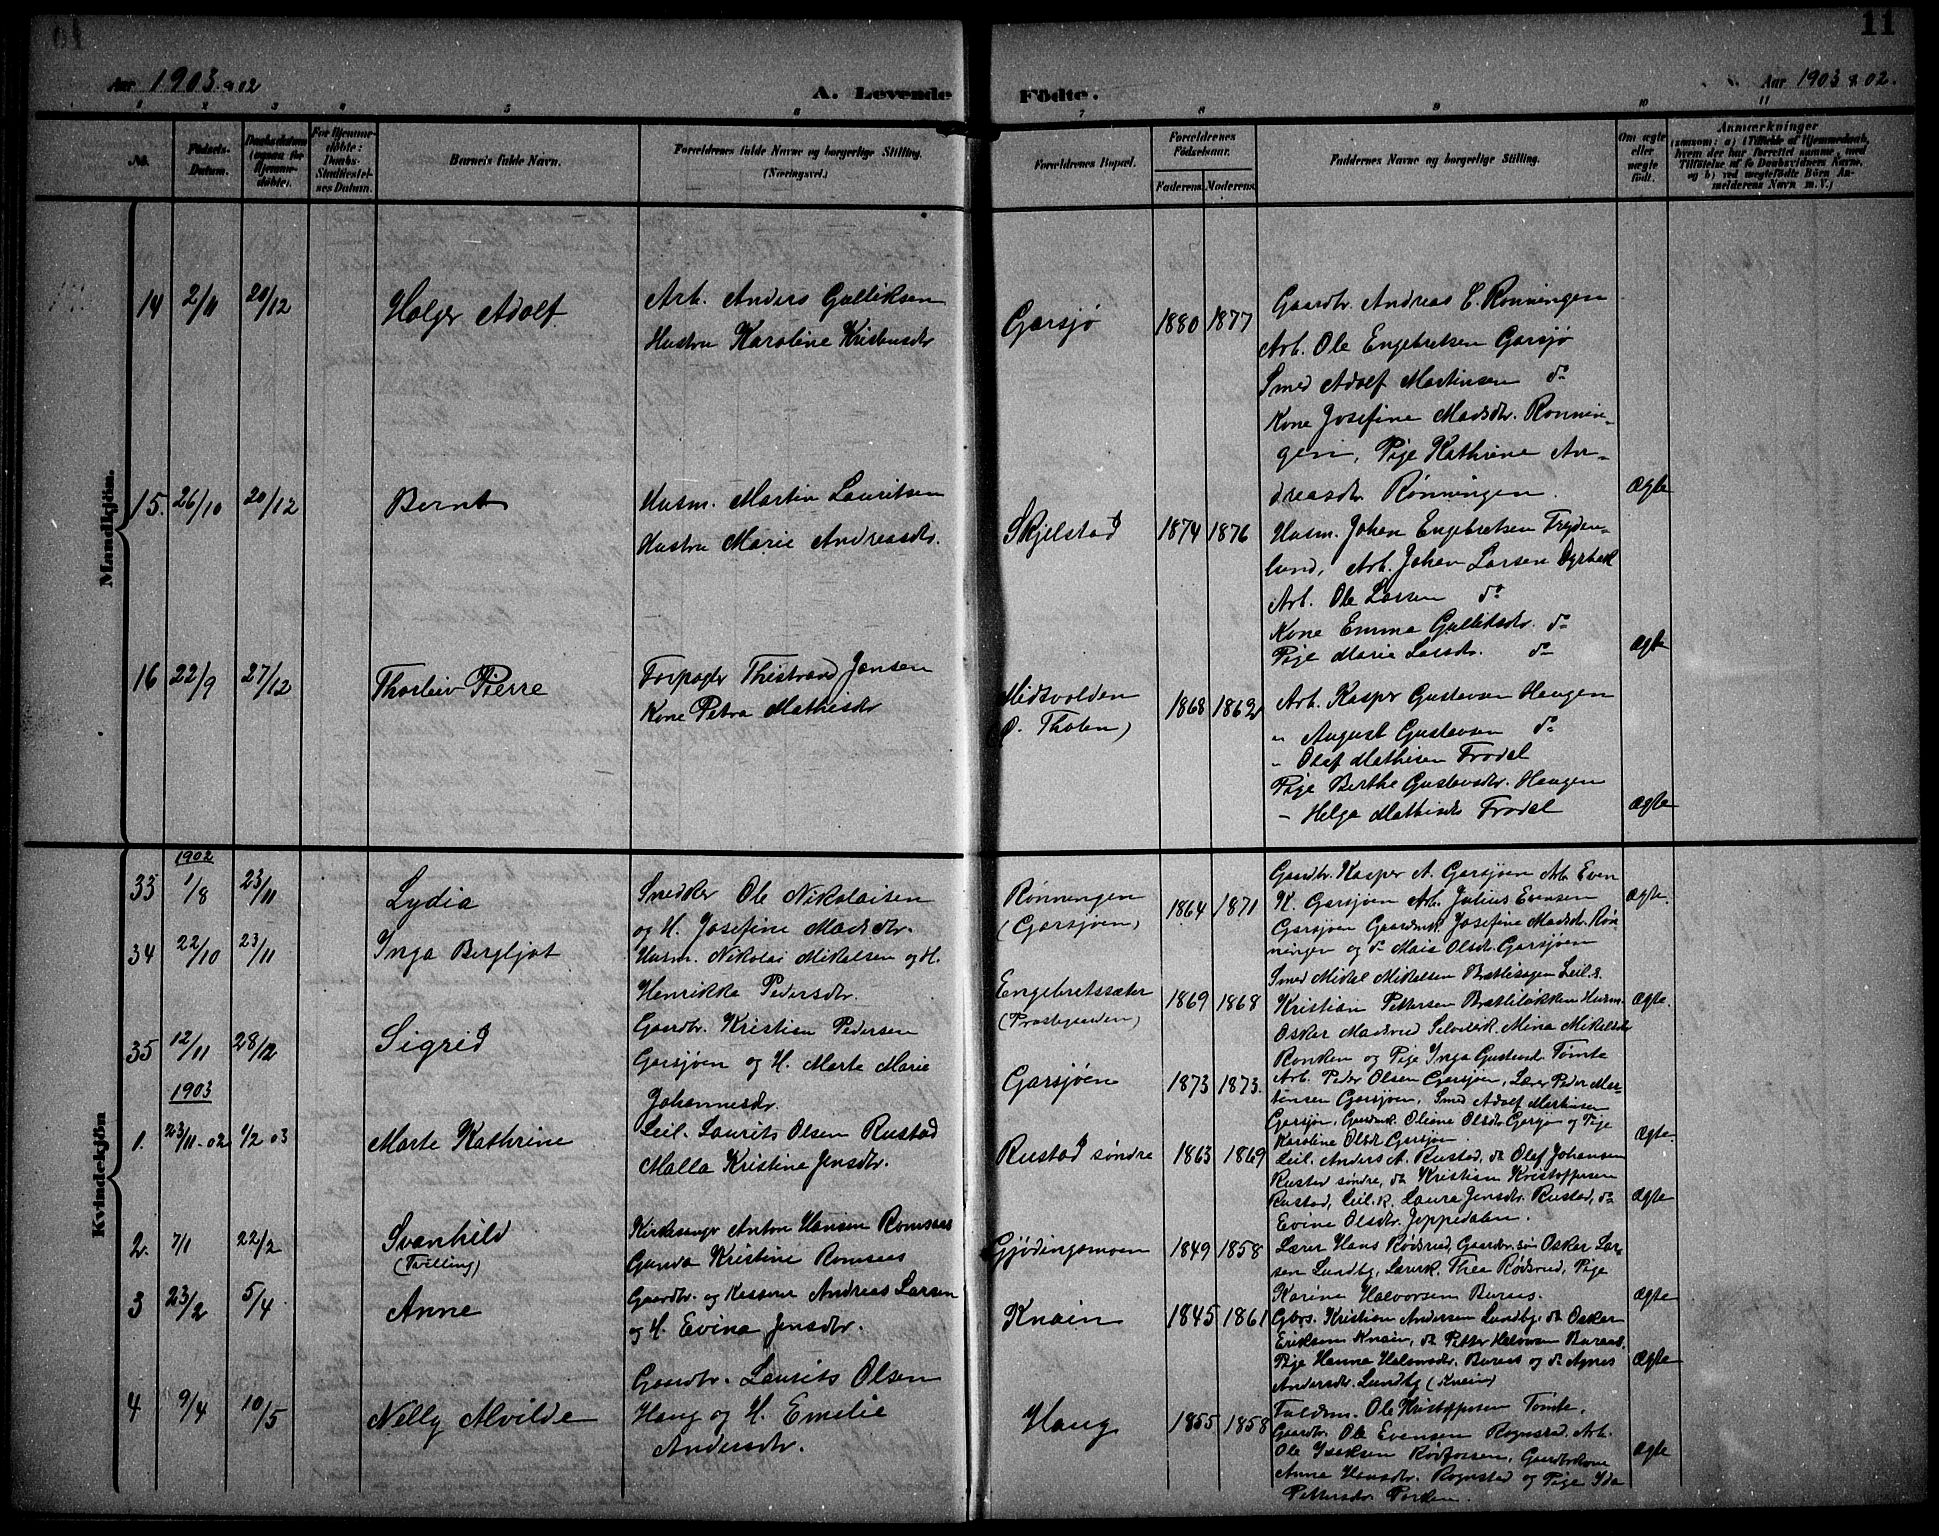 Aar 1903 & 02
A. Levende Födte.
Aar 1903 & 02.
11
1 2 3 4 5 6 7 8 9 10 11
No.
Födsels-Datum.
Daabsdatum
For Hjemme-döbte:
Barnets fulde Navn.
Forældrenes fulde Navne og borgerlige Stilling.
(Næringsvei.)
Forældrenes Bopæl.
Forældrenes Födselsaar.
Faderens Moderens
Faddernes Navne og borgerlige Stilling.
Om ægte eller uægte födt.
Anmærkninger
Mandkjön.
14 2/11 20/12 Holger Adolf
Arb. Anders Gulliksen
Hustru Karoline Kristiansdtr
Garsjø 1880 1877
Gaardbr. Andreas E. Rønningen
Arb. Ole Engebretsen Garsjø
Smed Adolf Martinsen do
Kone Josefine Madsdtr. Rønnin-
gen, Pige Kathrine An-
dreasdtr. Rønningen.
Ægte
15. 26/10 20/12 Bernt
Husm. Martin Lauritsen
Hustru Marie Andreasdtr.
Skjelstad 1874 1876
Husm. Johan Engebretsen Fryden-
lund, Arb. Johan Larsen Dyrbæk
Arb. Ole Larsen do
Kone Emma Gulliksdtr. do
Pige Marie Larsdtr. do
Ægte
16 22/9 27/12 Thorleiv Pierre
Forpagter Thistrand Jensen
Kone Petra Mathisdtr
Midtvolden
(P. Tholen)
1868 1862
Arb. Kasper Gustavsen Haugen
" August Gustavsen do
" Olaf Mathisen Frodal
Pige Berthe Gustavsdtr. Haugen
" Helga Mathisdtr Frodal
Ægte
Kvindekjön
1902
33 1/8 23/11 Lydia
Snedker Ole Nikolaisen
og H. Josefine Madsdtr.
Rønningen
(Garsjøen)
1864 1871
Gaardbr. Kasper A. Garsjøen Arb. Even
K. Garsjøen Arb. Julius Evensen
Garsjøen Gaardmk. Josefine Madsdtr. Røn-
ningen og do Mais Olsdtr. Garsjøen
Ægte.
34 22/10 23/11 Inga Bergljot
Husm. Nikolai Mikalsen og H.
Henrikka Pedersdtr.
Engebretssæter
(Prostgaarden)
1869 1868
Smed Mikal Mikelsen Brættisagen Leil. s.
Kristian Pettersen Brættiløkken Husm.
Oskar Madsrud Selviserk. Mina Mikelsdtr
Ronken og Pige Inga Gustavsd. Tømte
Ægte.
35 12/11 28/12 Sigrid
Gaardbr. Kristian Pedersen
Garsjøen og H. Marte Marie
Johannesdtr.
Garsjøen 1873 1873.
Arb. Peder Olsen Garsjøen, Lærer Peder Mar-
tinsen Garsjøen, Smed Adolf Martinsen
Garsjøn, Gaardmk. Oline Olsdtr. Garsjø og Pige
Karoline Olsdtr Garsjøn.
Ægte.
1903
1. 23/11-02 1/2 03 Marte Kathrine
Leil. Laurits Olsen Rustad
Malla Kristine Jensdtr.
Rustad søndre 1863 1869
Leil. Anders A. Rustad, do Olaf Johansen
Rustad søndre, do Kristian Kristoffersen
Rustad, Leil. k. Laura Jensdtr. Rustad, do
Evine Olsdtr. Jeppedalen.
Ægte
2. 7/1 22/2 Svanhild
(Tvilling)
Kirkesanger Anton Hansen Romsaas
Gunda Kristine Romsaas
Gjødingsmoen 1849 1858
Lærer Hans Rødsrud, Gaardbr. søn Oskar Lar-
sen Lundby, Lærerk. Thea Rødsrud, Pige
Karine Halvorsen Buraas.
Ægte
3 23/2 5/4 Anne
Gaardbr. og Kasserer Andreas Larsen
og H. Evina Jensdtr.
Knain 1845 1861
Gbrs. Kristian Andersen Lundby, do Oskar
Eriksen Knain, do Petter Halvorsen Buraas,
Pige Hanna Halvorsdtr. Buraas og do Agnes
Andersdtr. Lundby (Knain)
Ægte
4 9/4 10/5 Nelly Alvilde
Gaardbr. Laurits Olsen
Haug og H. Emilie
Andersdtr.
Haug 1855 1858
Ole Kristoffersen Tømte,
Gaardbr. Ole Evensen Rognstad, Arb.
Ole Isaksen Rødfossen, Gaardbrkone
Anne Hansdtr. Rognstad og Pige Ida
Pettersdtr.
Ægte